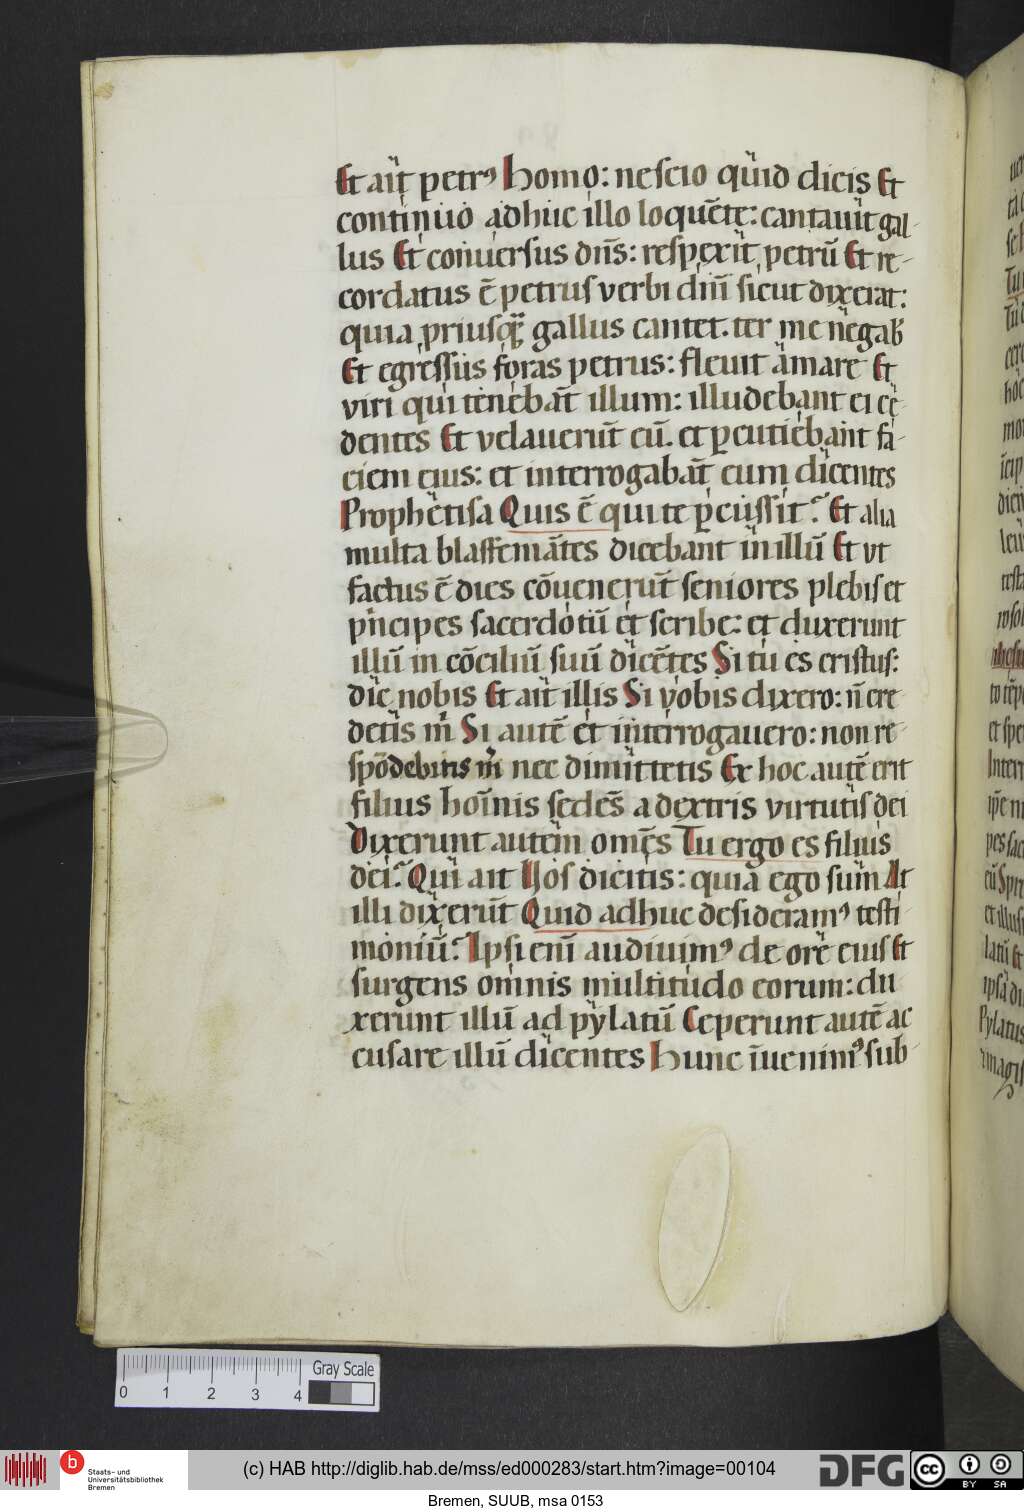 Et ait petrꝰ homo: nescio quid dicis Et
continuo adhuc illo loquēte: cantauit gal-
lus Et conuersus dn̄s: respexit petrū Et re-
cordatus ē petrus verbi dn̄i sicut dixerat:
quia priusqᷓ gallus cantet. ter me negab̾
Et egressus foras petrus: fleuit amare Et
viri qui tenebāt illum: illudebant ei ce-
dentes Et velauerūt eū. et ꝑcutiebant fa-
ciem eius: et interrogabāt eum dicentes
Prophetisa Quis ē qui te ꝑcussit? Et alia
multa blasfemātes dicebant in illū Et vt
factus ē dies cōuenerūt seniores plebis et
pͥncipes sacerdotū et scribe: et duxerunt
illū in cōciliū suū dicētes Si tu es cristus:
dic nobis Et ait illis Si vobis dixero: n̄ cre
detis m̄ Si autē et interrogauero: non re-
spōdebitis m̄ nec dimittetis Ex hoc autē erit
filius hoīnis sedēs a dextris virtutis dei
Dixerunt autem omēs Tu ergo es filius
dei? Qui ait Uos dicitis: quia ego sum At
illi dixerūt Quid adhuc desideramꝰ testi-
moniū? Ipsi enī audiuimꝰ de ore eius Et
surgens omnis multitudo eorum: du
xerunt illū ad pylatū Ceperunt autē ac
cusare illū dicentes Hunc īuenimꝰ sub-
0 1 2 3 4
Gray Scale
b
Staats- und
Universitätsbibliothek
Bremen
(c) HAB http://diglib.hab.de/mss/ed000283/start.htm?image=00104
DFG
cc BY SA
Bremen, SUUB, msa 0153